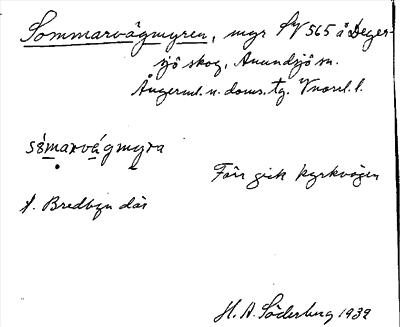 Sommarvägmyren, myr SV 565 å Deger-
sjö skog, Anundsjö sn.
Ångerml. n. doms. tg. Vnorrl. l.
sömarvägmyra
Förr gick kyrkvägen
f. Bredbyn där
H. A. Söderberg 1932